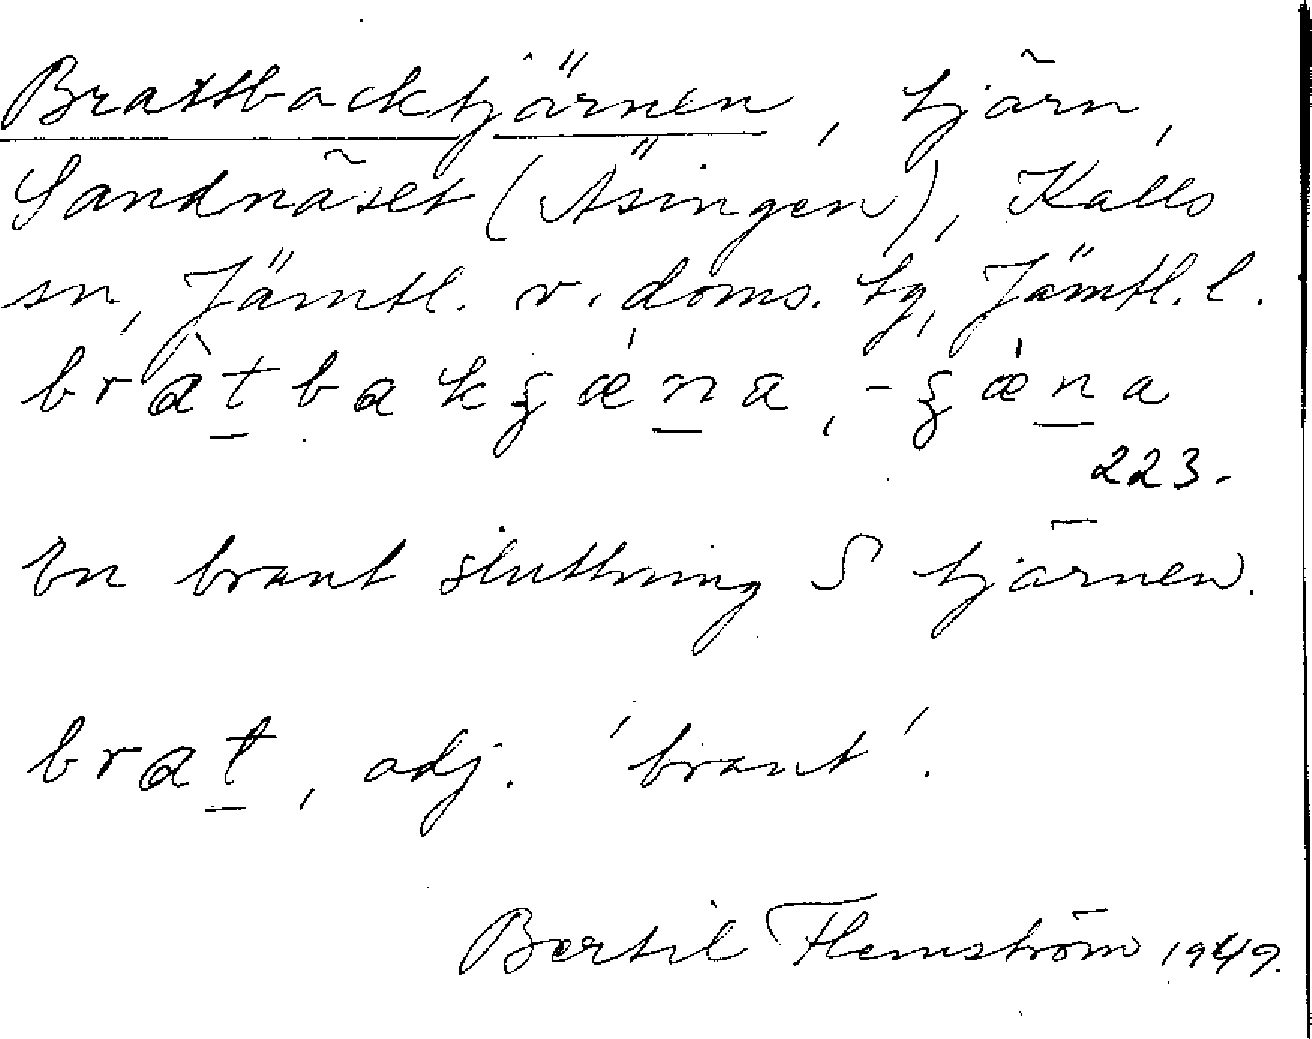 Brattbacktjärnen, tjärn,
Sandnäset (Äsingen), Kalls
sn, Jämtl. v. doms. tg, Jämtl. l.
223.
En brant sluttning S tjärnen.
brat, adj. 'brant'.
Bertil Flemström 1949.